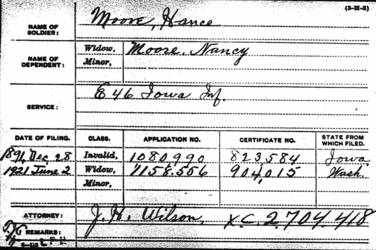 (3-II-8)
NAME OF SOLDIER: Moore, Hance
NAME OF DEPENDENT: Widow, Moore, Nancy
Minor,
SERVICE: E 46 Iowa Inf.
DATE OF FILING. CLASS. APPLICATION NO. CERTIFICATE NO. STATE FROM WHICH FILED.
1891 Dec. 28 Invalid, 1080990 823,584 Iowa
1921 June 2 Widow, 1158.556 904,015 Wash.
Minor,
ATTORNEY: J. H. Wilson, XC 2,704,418
REMARKS: